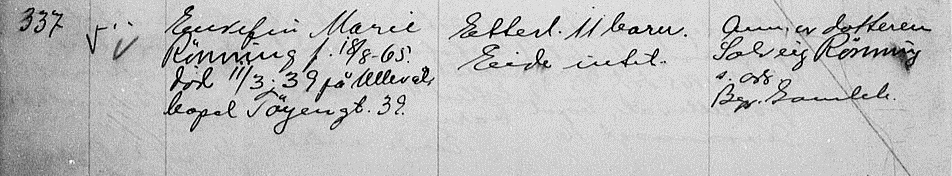 337
Enkefru Marie
Rönning f. 18/8-65.
död 11/3.39 på Ullevål.
bopel Töyengt. 39.
Etterl. 11 barn.
Eide intet.
Anm. av datteren
Solveig Rönning
s. ads
Bgr. Gamleb.